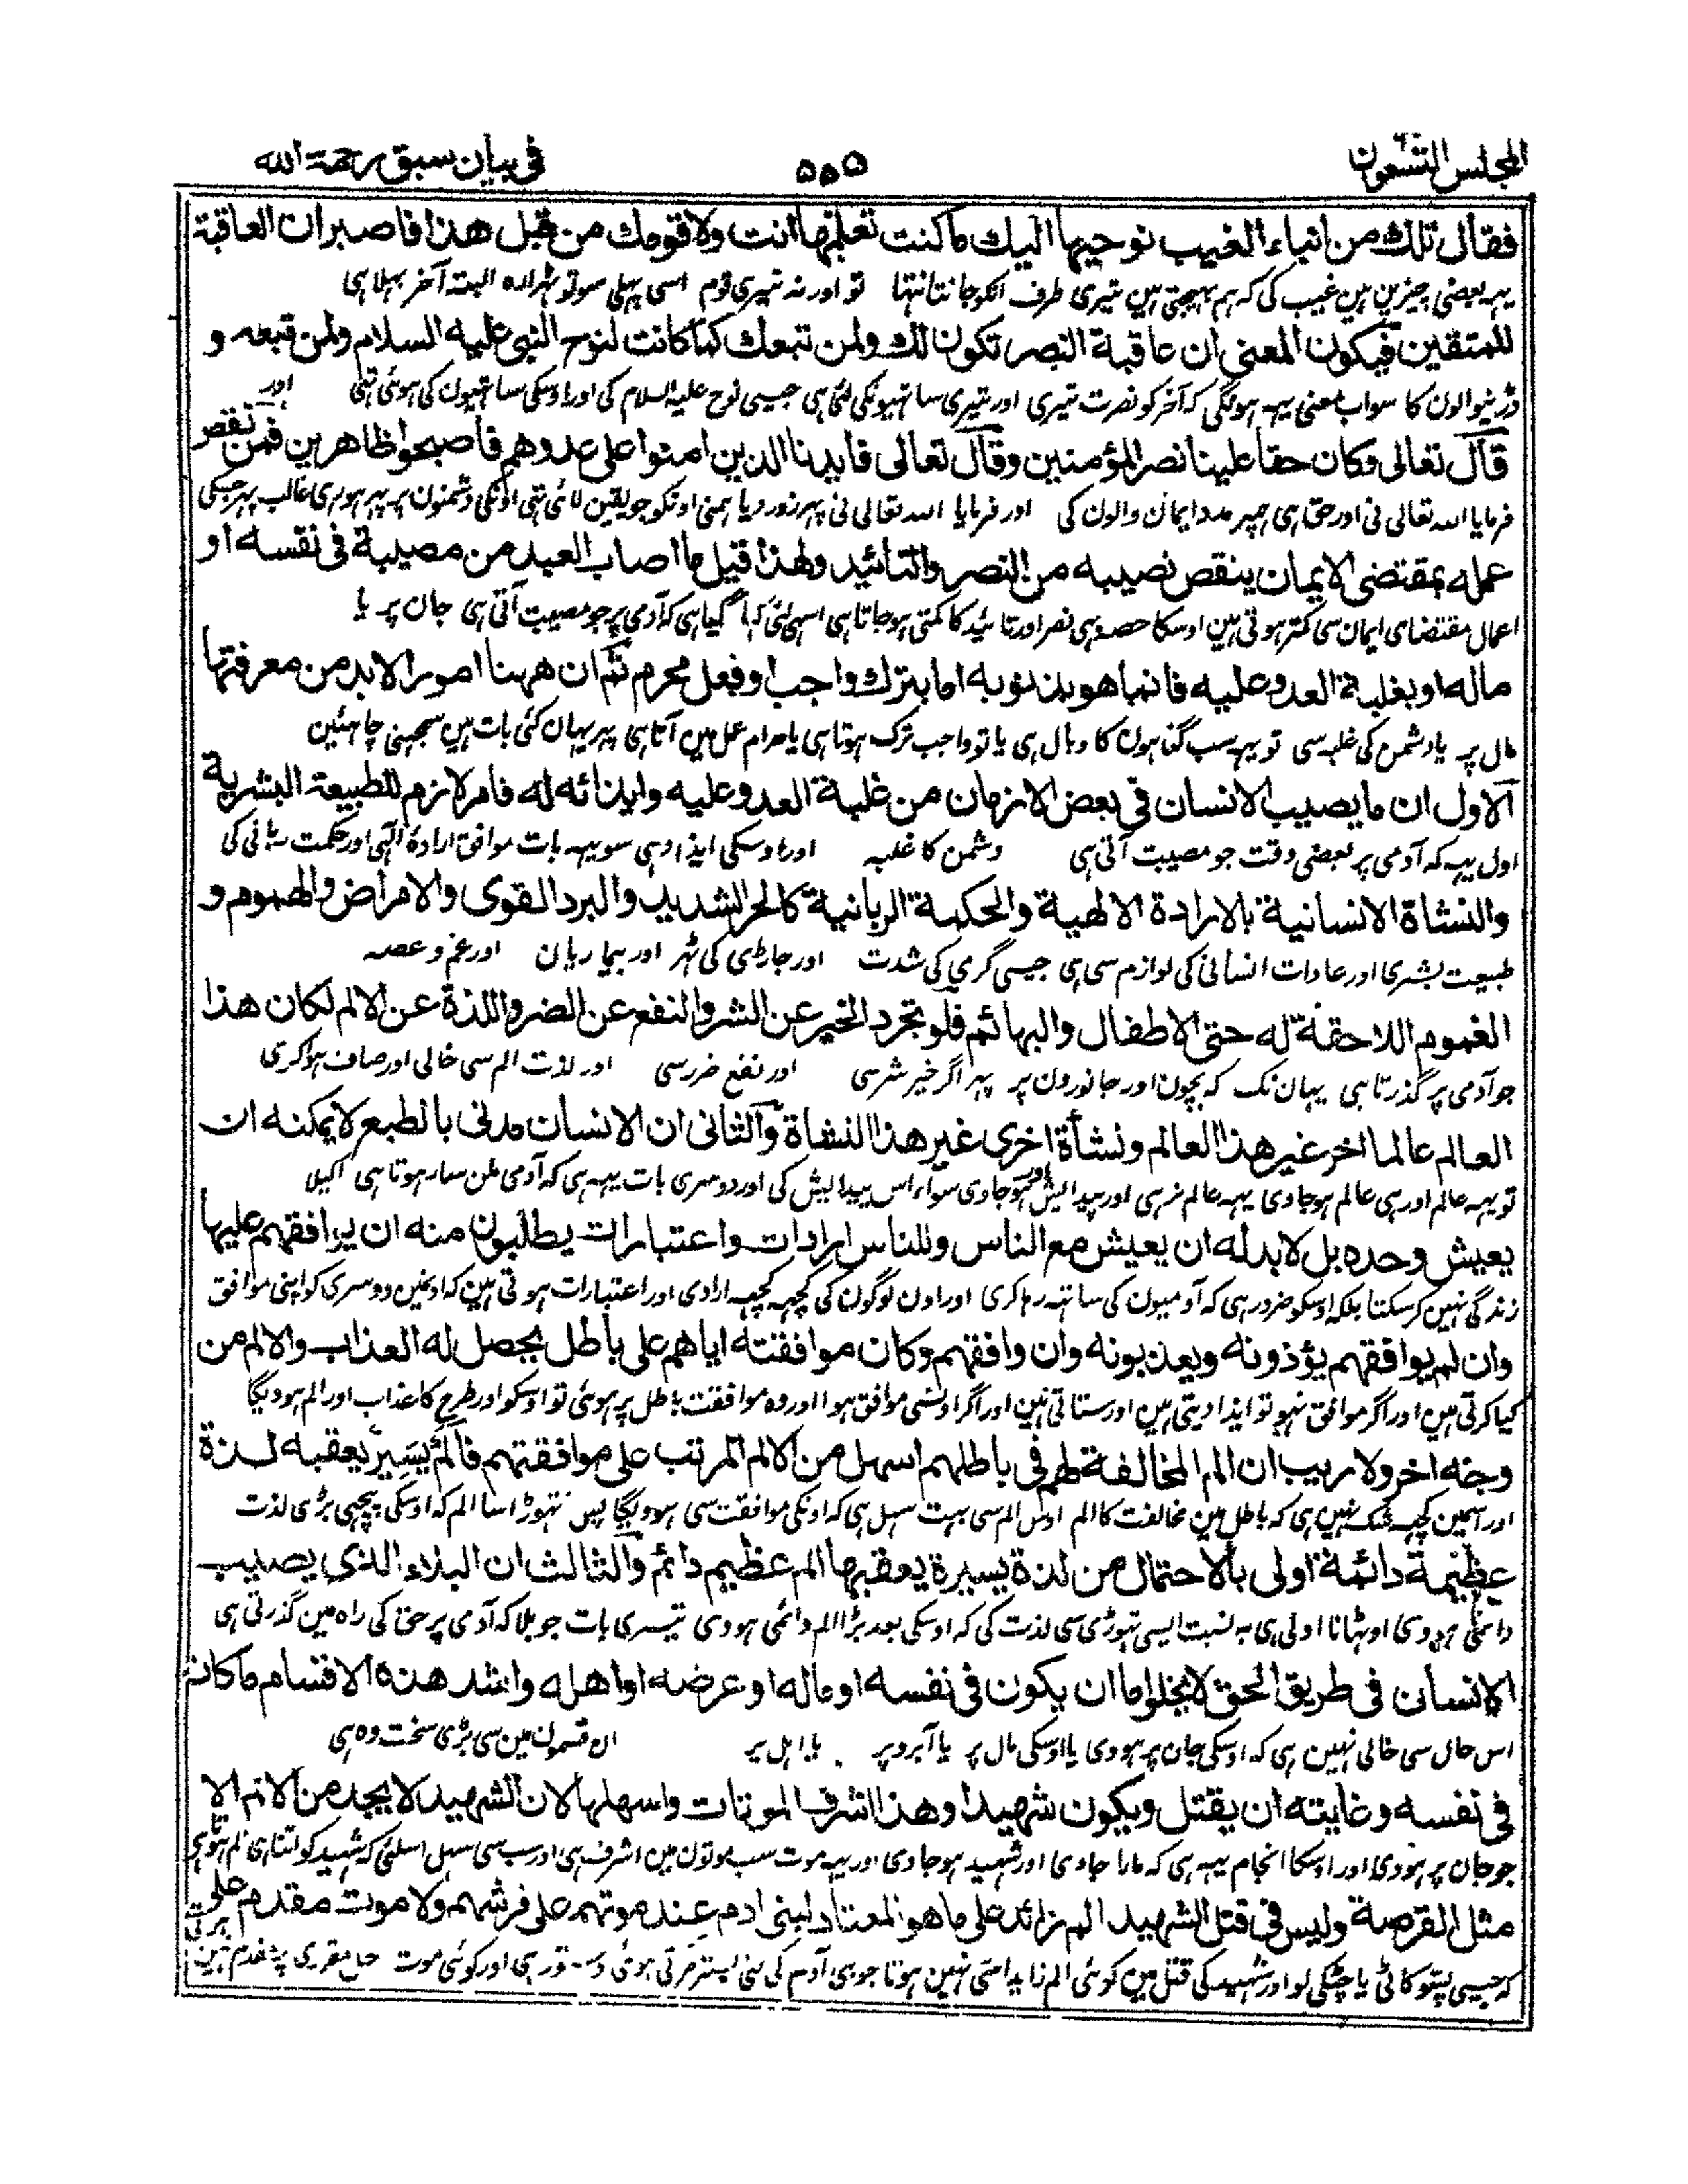 المجلس التسعون ۵۵۵ فى بيان سبق رحمة الله
فقال تلك من انباء الغيب نوحيها اليك ما كنت تعلمها انت ولا قومك من قبل هذا فاصبر ان العاقبة
یہہ بعضی چیزین ہین غیب کی کہ ہم بہیجتی ہین تیری طرف انکو جانتا نتہا تو اور نہ تیری قوم اسی پہلی سو تو ٹہرا رہ البتہ آخر بہلا ہی
للمتقين فيكون المعنى ان عاقبة النصر تكون لك ولمن تبعك كما كانت لنوح النبى عليه السلام ولمن تبعه و
ڈرنیوالون کا سو اب معنی یہہ ہونگی کہ آخر کو نصرت تیری اور تیری ساتہیونکی لئی ہی جیسی نوح علیہ السلام کی اور اوسکی ساتہیون کی ہوئی تہی اور
قال تعالى وكان حقا علينا نصر المؤمنين وقال تعالى فايدنا الذين امنوا على عدوهم فاصبحوا ظاهرين فمن نقص
فرمایا اللہ تعالی نی اور حق ہی ہمپر مدد ایمان والون کی اور فرمایا اللہ تعالی نی پہر زور دیا ہمنی اونکو جو یقین لائی تہی اونکی دشمنون پر پہر ہو رہی غالب پہر جسکی
عمله بمقتضى الايمان ينقص نصيبه من النصر والتائيد ولهذا قيل ما اصاب العبد من مصيبة فى نفسه او
اعمال مقتضای ایمان سی کمتر ہوتی ہین اوسکا حصہ بہی نصر اور تائید کا کمتی ہو جاتا ہی اسہی لئی کہا گیا ہی کہ آدمی پر جو مصیبت آتی ہی جان پر یا
ماله او بغلبة العدو عليه فانما هو بذنوبه اما بترك واجب او فعل محرم ثم ان ههنا امورا لابد من معرفتها
مال پر یا دشمن کی غلبہ سی تو یہہ سب گناہون کا وبال ہی یا تو واجب ترک ہوتا ہی یا حرام عمل مین آتا ہی پہر یہان کئی بات ہین سمجہنی چاہئین
الاول ان ما يصيب الانسان فى بعض الازمان من غلبة العدو عليه وايذائه له فامر لازم للطبيعة البشرية
اول یہہ کہ آدمی پر بعضی وقت جو مصیبت آتی ہی دشمن کا غلبہ اور اوسکی ایذا دہی سو یہہ بات موافق ارادۂ الہی اور حکمت ربانی کی
والنشاة الانسانية بالارادة الالهية والحكمة الربانية كالحر الشديد والبرد القوى والامراض والهموم و
طبیعت بشری اور عادات انسانی کی لوازم سی ہی جیسی گرمی کی شدت اور جاڑی کی ٹہر اور بیماریان اور غم و غصہ
الغموم اللاحقة له حتى الاطفال والبهائم فلو تجرد الخير عن الشر والنفع عن الضر واللذة عن الالم لكان هذا
جو آدمی پر گذرتا ہی یہان تک کہ بچون اور جانورون پر پہر اگر خیر شر سی اور نفع ضرر سی اور لذت الم سی خالی اور صاف ہوا کری
العالم عالما اخر غير هذا العالم ونشأة اخرى غير هذا النشاة والثانى ان الانسان مدنى بالطبع لا يمكنه ان
تو یہہ عالم اور ہی عالم ہو جاوی یہہ عالم نرہی اور پیدایش اور ہو جاوی سواء اس پیدایش کی اور دوسری بات یہہ ہی کہ آدمی ملنسار ہوتا ہی اکیلا
يعيش وحده بل لابد له ان يعيش مع الناس وللناس ارادات واعتبارات يطالبون منه ان يوافقهم عليها
زندگی نہین کر سکتا بلکہ اوسکو ضرور ہی کہ آدمیون کی ساتہہ رہا کری اور اون لوگون کی کچہہ کچہہ ارادی اور اعتبارات ہوتی ہین کہ اونہین دوسری کو اپنی موافق
وان لم يوافقهم يؤذونه ويعذبونه وان وافقهم وكان موافقته اياهم على باطل يحصل له العذاب والالم من
کیا کرتی ہین اور اگر موافق نہو تو ایذا دیتی ہین اور ستاتی ہین اور اگر اونسی موافق ہوا اور وہ موافقت باطل پر ہوئی تو اوسکو اور طرح کا عذاب اور الم ہوویگا
وجه اخر ولا ريب ان الم المخالفة لهم فى باطلهم اسهل من الالم المرتب على موافقتهم فالم يسير يعقبه لذة
اور اسمین کچہہ شک نہین ہی کہ باطل مین مخالفت کا الم اوس الم سی بہت سہل ہی کہ اونکی موافقت سی ہوویگا پس تہوڑا سا الم کہ اوسکی پیچہی بڑی لذت
عظيمة دائمة اولى بالاحتمال من لذة يسيرة يعقبها الم عظيم دائم والثالث ان البلاء الذى يصيب
دائمی ہووی اوٹہانا اولی ہی بہ نسبت ایسی تہوڑی سی لذت کی کہ اوسکی بعد بڑا الم دائمی ہووی تیسری بات جو بلا کہ آدمی پر حق کی راہ مین گذرتی ہی
الانسان فى طريق الحق لا يخلو اما ان يكون فى نفسه او ماله او عرضه او اهله واشد هذه الاقسام ما كان
اس حال سی خالی نہین ہی کہ اوسکی جان پر ہووی یا اوسکی مال پر یا آبرو پر یا اہل پر ان قسمون مین سی بڑی سخت وہ ہی
فى نفسه وغايته ان يقتل ويكون شهيدا وهذا اشرف الموتات واسهلها لان الشهيد لا يجد من الالم الا
جو جان پر ہووی اور اوسکا انجام یہہ ہی کہ مارا جاوی اور شہید ہو جاوی اور یہہ موت سب موتون مین اشرف ہی اور سب سی سہل اسلئی کہ شہید کو اتنا ہی الم ہوتا ہی
مثل القرصة وليس فى قتل الشهيد الم زائد على ما هو المعتاد لبنى ادم عند موتهم على فرشهم ولا موت مقدم على
کہ جیسی پسو کاٹی یا چٹکی لو اور شہید کی قتل مین کوئی الم زاید اسی نہین ہوتا جو بنی آدم کی تئی بستر مرتی ہوئی اور کوئی موت